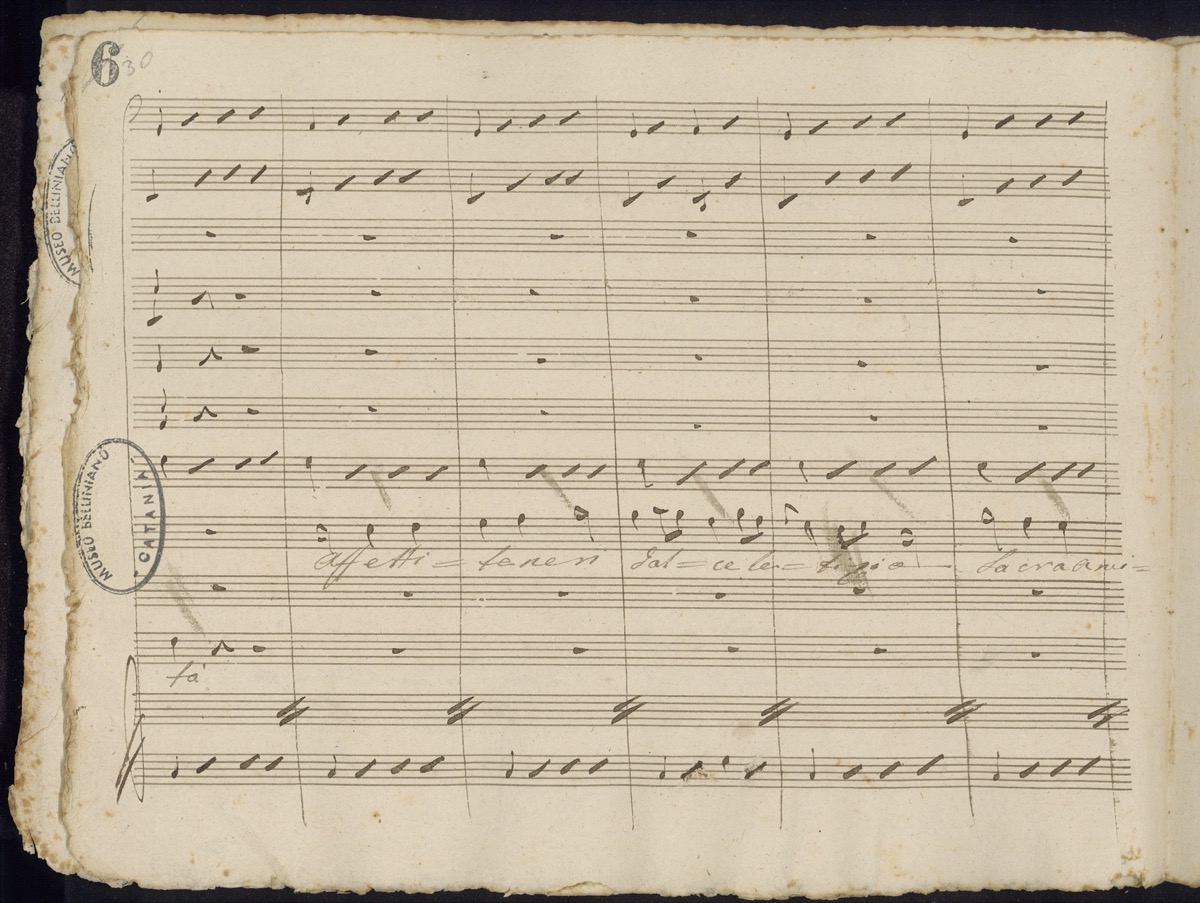 6 30
MUSEO BELLINIANO
MUSEO BELLINIANO
CATANIA
affetti = teneri dal = ce le =
tà